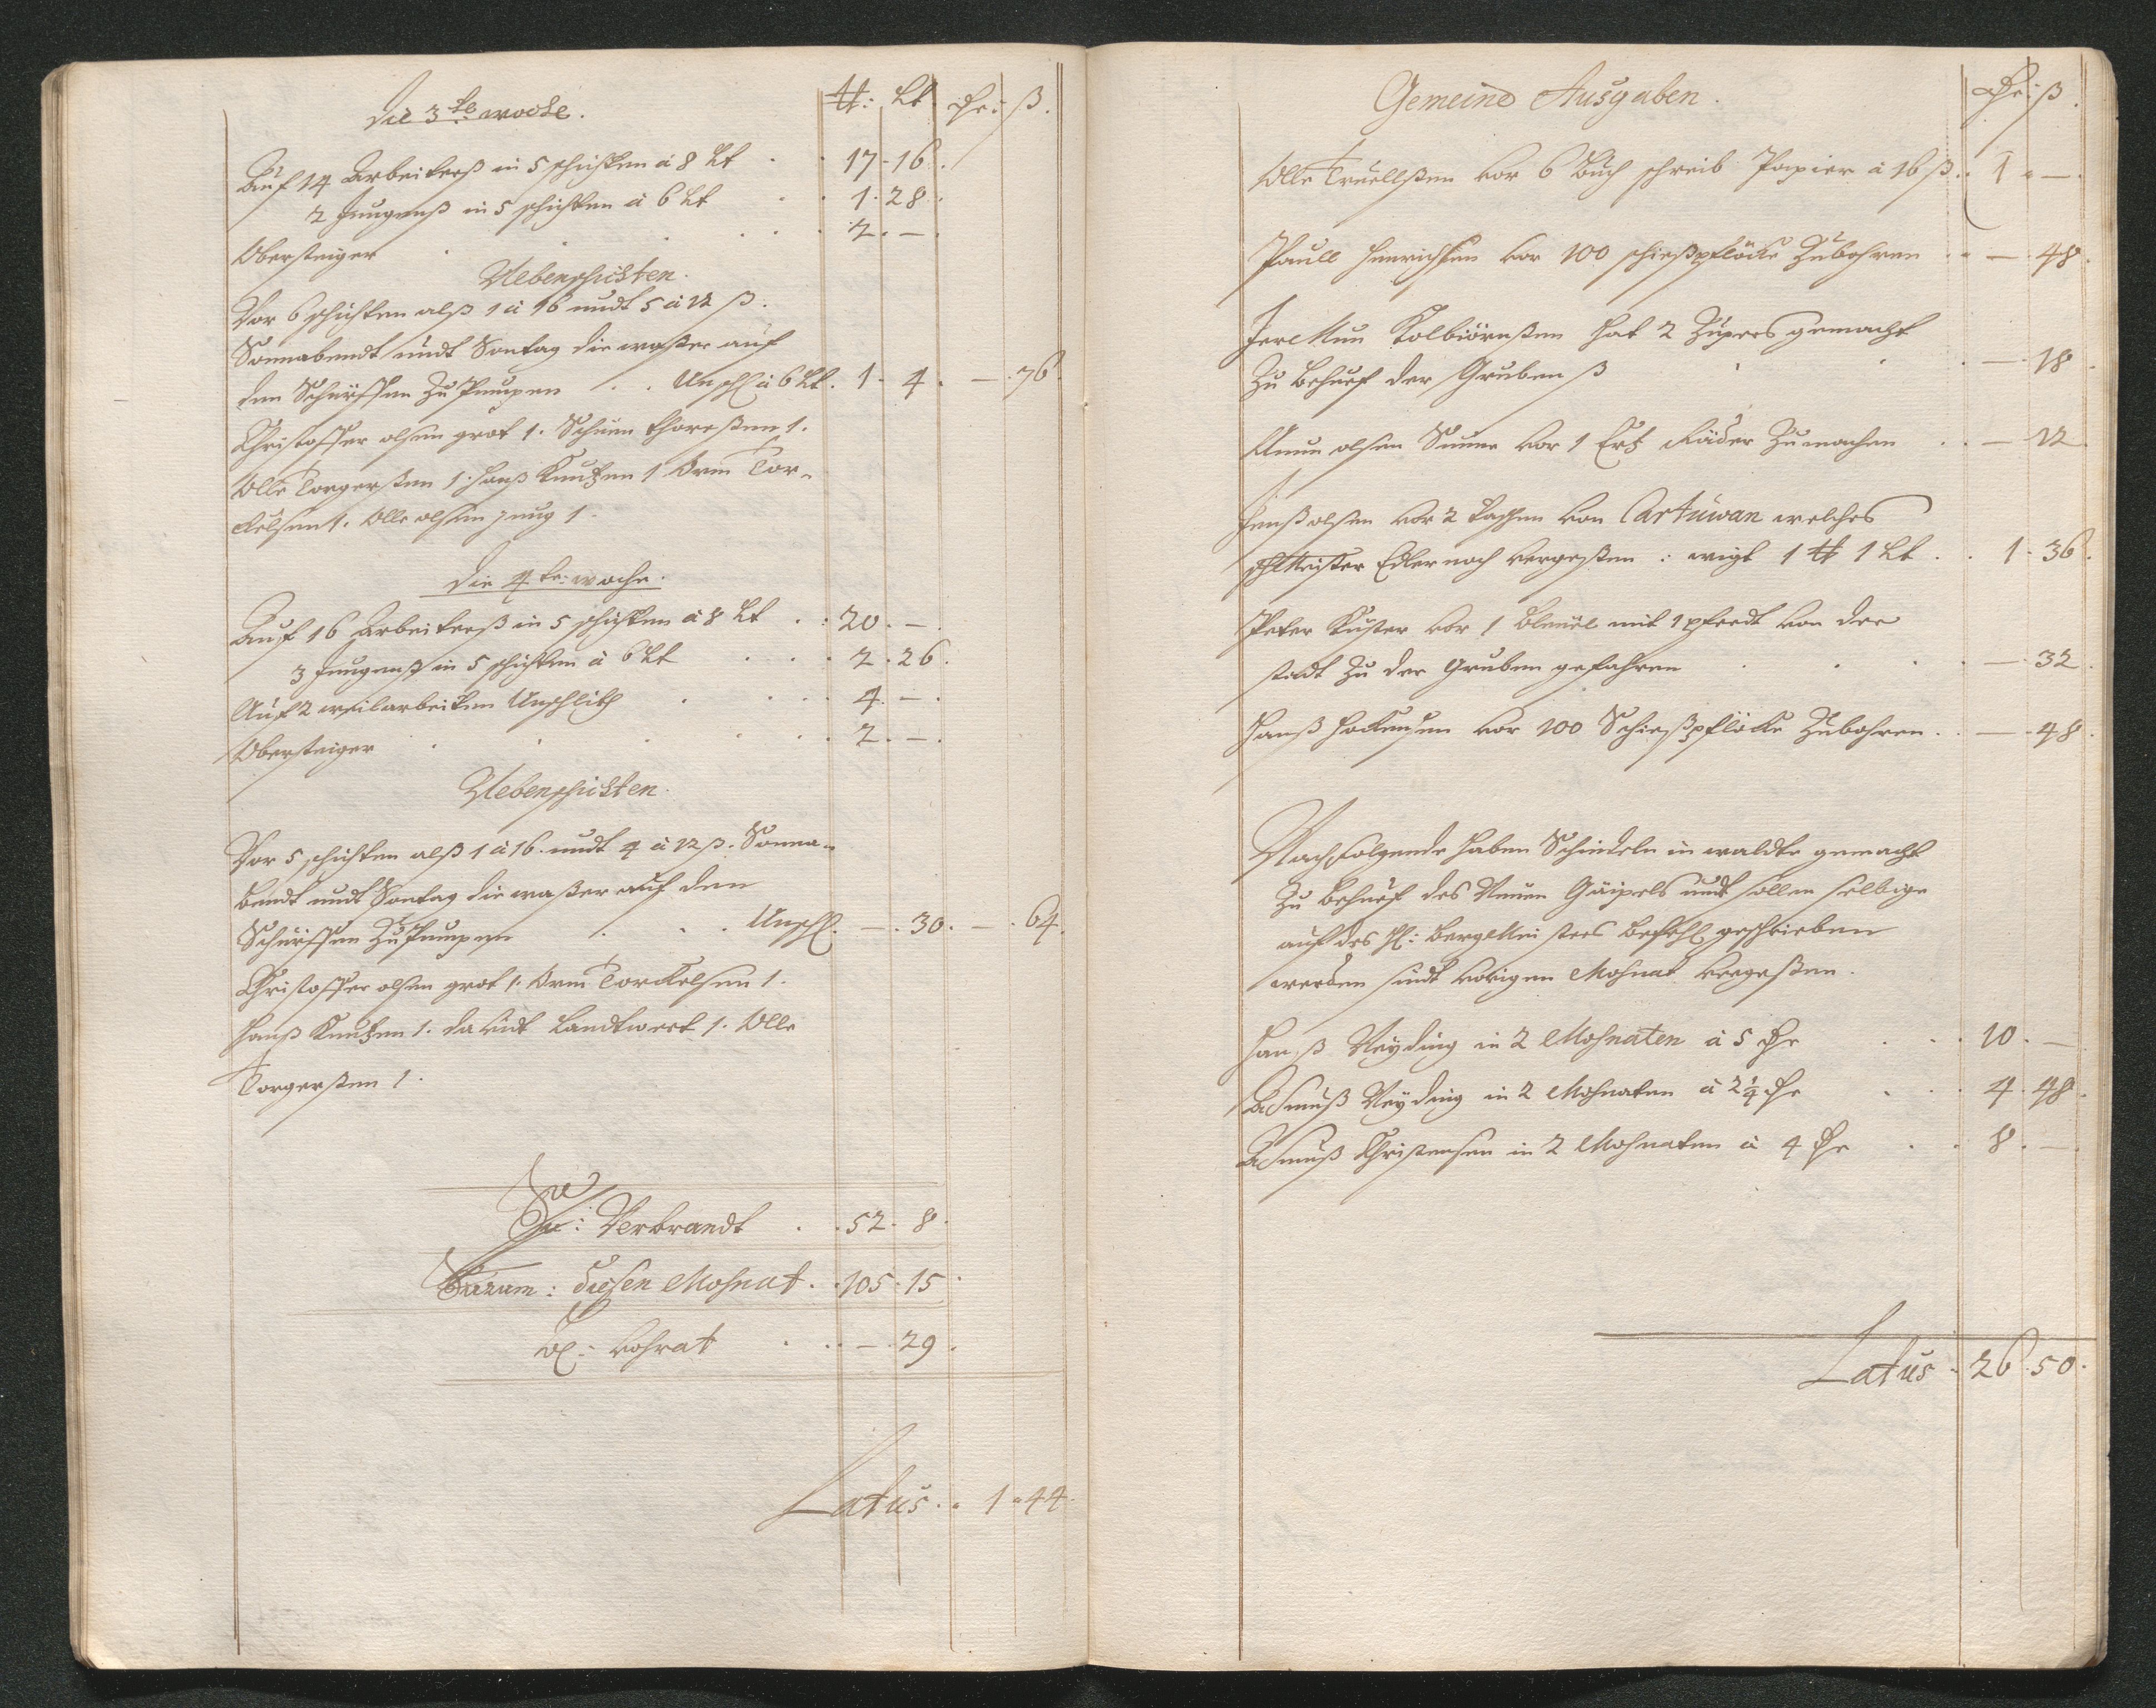 Die 3te woche.
℔: Lt Thr: ß.
Auf 14 Arbeiterß in 5 schichten à 8 Lt . . 17 - 16.
2 Jungenß in 5 schichten à 6 Lt . . 1 . 28.
Obersteiger . . . . . 2 . — .
Nebenschichten.
Vor 6 schichten alß 1 à 16 undt 5 à 12 ß.
Sonnabendt undt Sontag die waßer auf
den Schürffen Zu Pumpen . . Unschl à 6 Lt. 1 - 4 . — . 76.
Christoffer olsen grot 1. Schien thoreßen 1.
Olle Torgerßen 1. Hanß Knutzen 1 Arm Tor-
kelsen 1. Olle olsen jung 1.
Die 4te: woche.
Auf 16 Arbeiterß in 5 schichten à 8 Lt . . 20 . — .
3 Jungenß in 5 schichten à 6 Lt . . . 2 . 26.
Auf 2 weilarbeiten Unschlith . . . 4 . — .
Obersteiger . . . . . 2 . — .
Nebenschichten.
Vor 5 schichten alß 1 à 16. undt 4 à 12 ß. Sonna-
bendt undt Sontag die waßer auf den
Schürffen Zu Pumpen . . . Unschl. — . 30. — . 64.
Christoffer olsen grot 1. Arm Torkelsen 1.
Hanß Knutzen 1. David Landtwerk 1. Olle
Torgerßen 1.
Su: Verbrandt . . 52 . 8.
Darum: diesen Mohnat . . 105 . 15.
Vohrat . . — . 29.
Latus . . 1 . 44.
Gemeine Ausgaben.
Thr: ß.
Olle Truellßen vor 6 Buch schreib Papier à 16 ß. . 1 . — .
Paull Hinrichsen vor 100 schießpflöcke Zubohren . . — . 48.
Kolbiörnßen hat 2 Züpers gemacht
Zu behuef der Gruben ß . . . — . 18.
Anun olsen vor 1 Ertz Räder Zumachen . . — 12
Jenß olsen vor 2 von Cartuwan welches
schMeister Edler noch vergeßen : wigt 1 ℔ 1 Lt . . 1 . 36.
Peter Kuster vor 1 Bleuel mit 1 pferdt von der
stadt Zu der Gruben gefahren . . . . — . 32.
Hanß Hokensen vor 100 Schießpflöcke Zubohren . . — . 48.
Nachfolgende haben Schindeln in waldte gemacht
Zu behuef des Neuen Gäipels undt sollen selbige
auf des H: BergMeisters Befehl geschrieben
werden sindt vorigen Mohnat vergeßen.
Hanß Neyding in 2 Mohnaten à 5 Thr . . . 10 . —
Asmuß Neyding in 2 Mohnaten à 2 1/4 Thr . . . 4 . 48.
Asmuß Christensen in 2 Mohnaten à 4 Thr . . 8 . — .
Latus . 26 . 50.